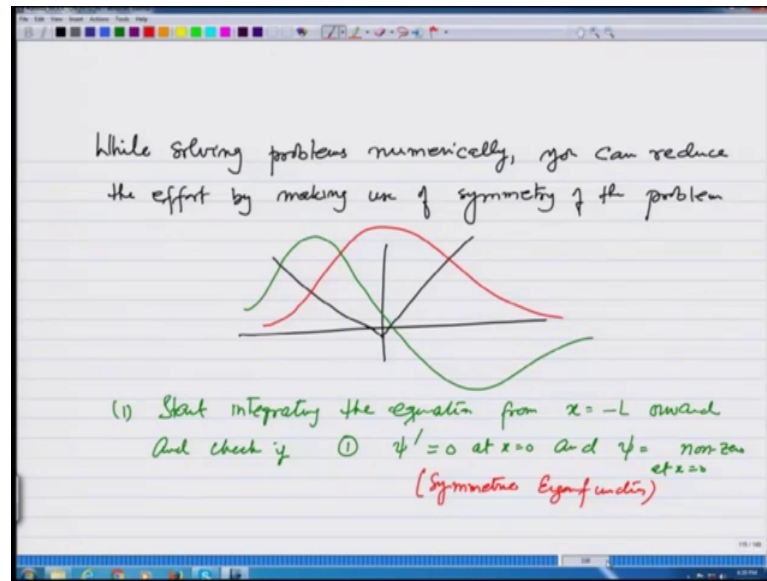 File Edit View Insert Actions Tools Help
While solving problems numerically, you can reduce
the effort by making use of symmetry of the problem
(1) Start integrating the equation from x = -L onward
And check if ① ψ' = 0 at x=0 and ψ = non-zero
at x=0
(Symmetric Eigenfunction)
115 / 145